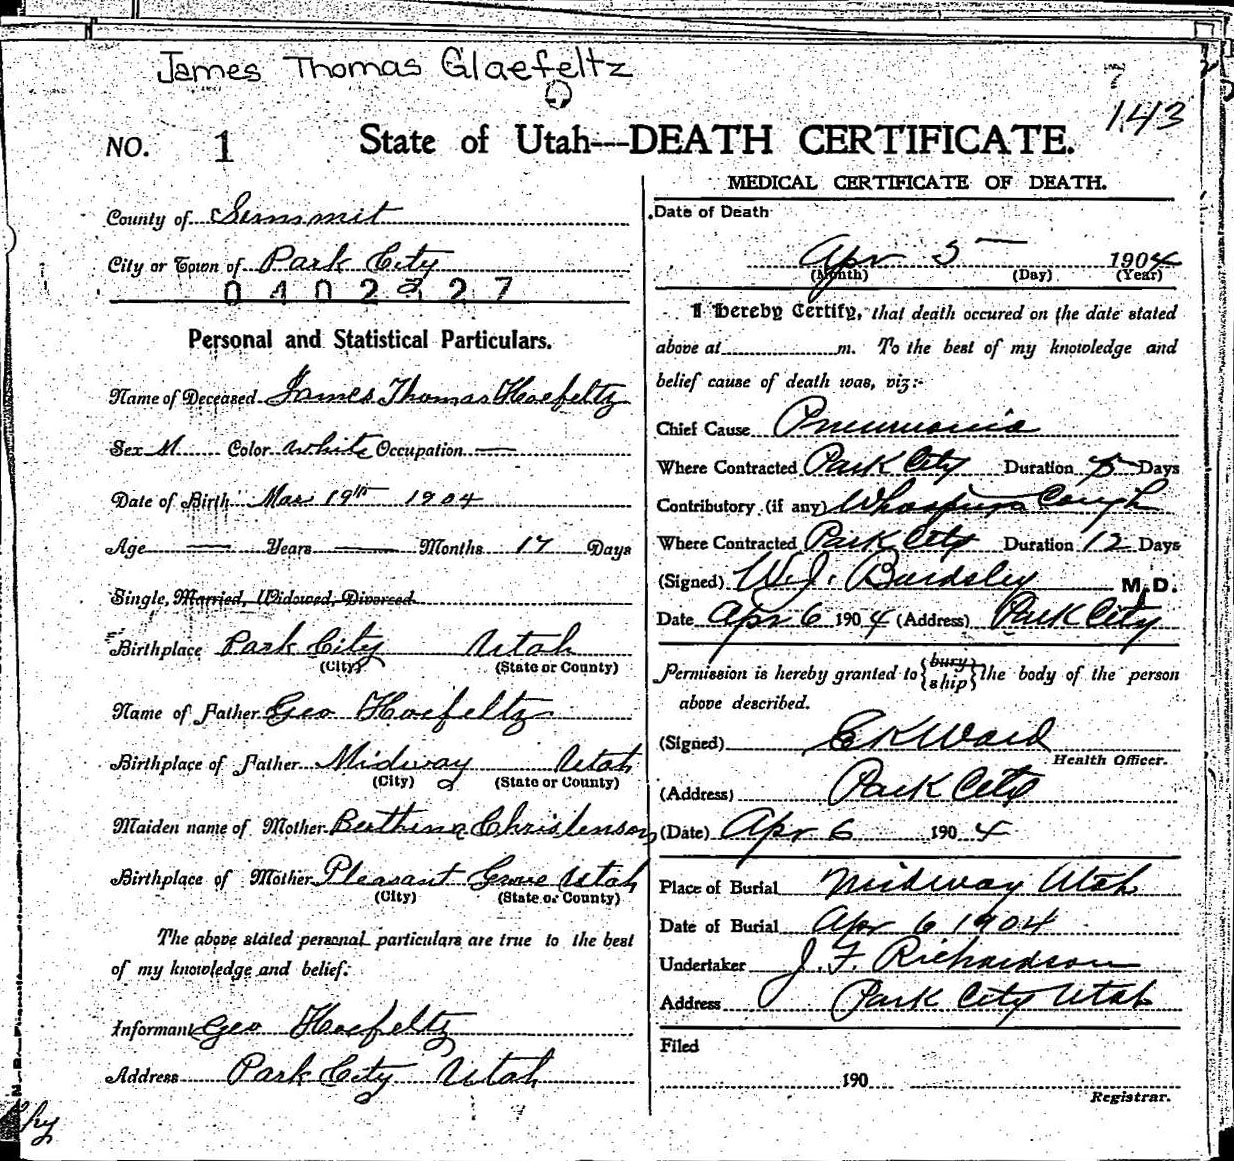 James Thomas Glaefeltz
7
143
NO. 1 State of Utah---DEATH CERTIFICATE.
County of Summit
City or Town of Park City
0402327
Personal and Statistical Particulars.
Name of Deceased James Thomas Hoefeltz
Sex M Color White Occupation —
Date of Birth Mar 19th 1904
Age — Years — Months 17 Days
Single, Married, Widowed, Divorced
Birthplace Park City Utah
(City) (State or County)
Name of Father Geo Hoefeltz
Birthplace of Father Midway Utah
(City) (State or County)
Maiden name of Mother Berthena Christenson
Birthplace of Mother Pleasant Grove Utah
(City) (State or County)
The above stated personal particulars are true to the best
of my knowledge and belief.
Informant Geo Hoefeltz
Address Park City Utah
MEDICAL CERTIFICATE OF DEATH.
Date of Death
Apr 5 1904
(Month) (Day) (Year)
I hereby Certify, that death occured on the date stated
above at m. To the best of my knowledge and
belief cause of death was, viz:-
Chief Cause Pneumonia
Where Contracted Park City Duration 5 Days
Contributory (if any) Whooping Cough
Where Contracted Park City Duration 12 Days
(Signed) W.J. Bardsley M.D.
Date Apr 6 1904 (Address) Park City
Permission is hereby granted to {bury ship} the body of the person
above described.
(Signed) E K Ward
Health Officer.
(Address) Park City
(Date) Apr 6 1904
Place of Burial Midway Utah
Date of Burial Apr 6 1904
Undertaker J. F. Richardson
Address Park City Utah
Filed
190
Registrar.